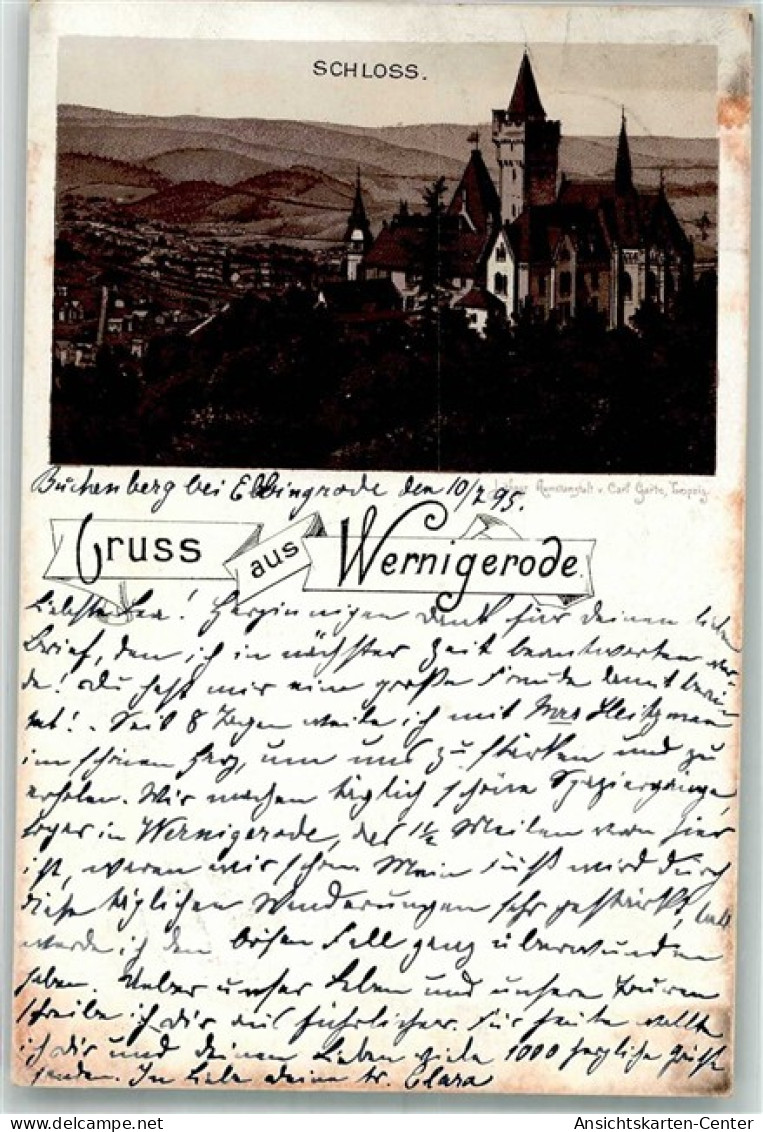 SCHLOSS.
Buchenberg bei Elbingerode den 10/7 95.
Lithogr. Kunstanstalt v. Carl Garte, Leipzig.
Gruss aus Wernigerode.
Liebste Lea! Herzinnigen Dank für deinen lieben
Brief, den ich in nächster Zeit beantworten wer-
de! Du hast mir eine große Freude damit berei-
tet! Seit 8 Tagen weile ich mit Mrs
im schönen Harz, um uns zu stärken und zu
erholen. Wir machen täglich schöne Spaziergänge,
sogar in Wernigerode, das 1½ Meilen von hier
ist, waren wir schon. Mein Fuß wird durch
diese täglichen Wanderungen sehr gestärkt, bald
werde ich den bösen Fall ganz überwunden
haben. Ueber unser Leben und unsere Touren
schreibe ich dir ausführlicher. Für heute wollte
ich dir und deinen Lieben viele 1000 herzliche Grüße
senden. In Liebe deine tr. Clara
Ansichtskarten-Center